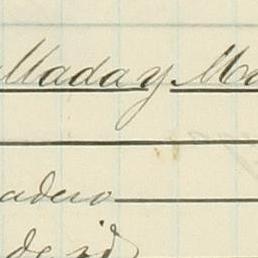 lladay Ma
adero
de id